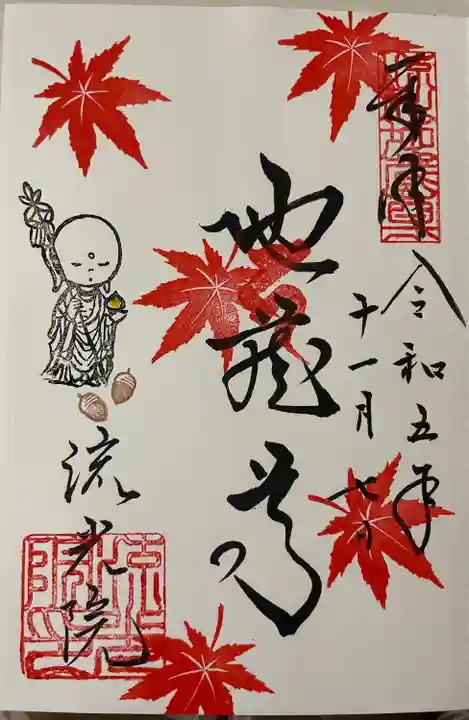 奉拝
令和五年
十一月七日
地蔵尊
流光院